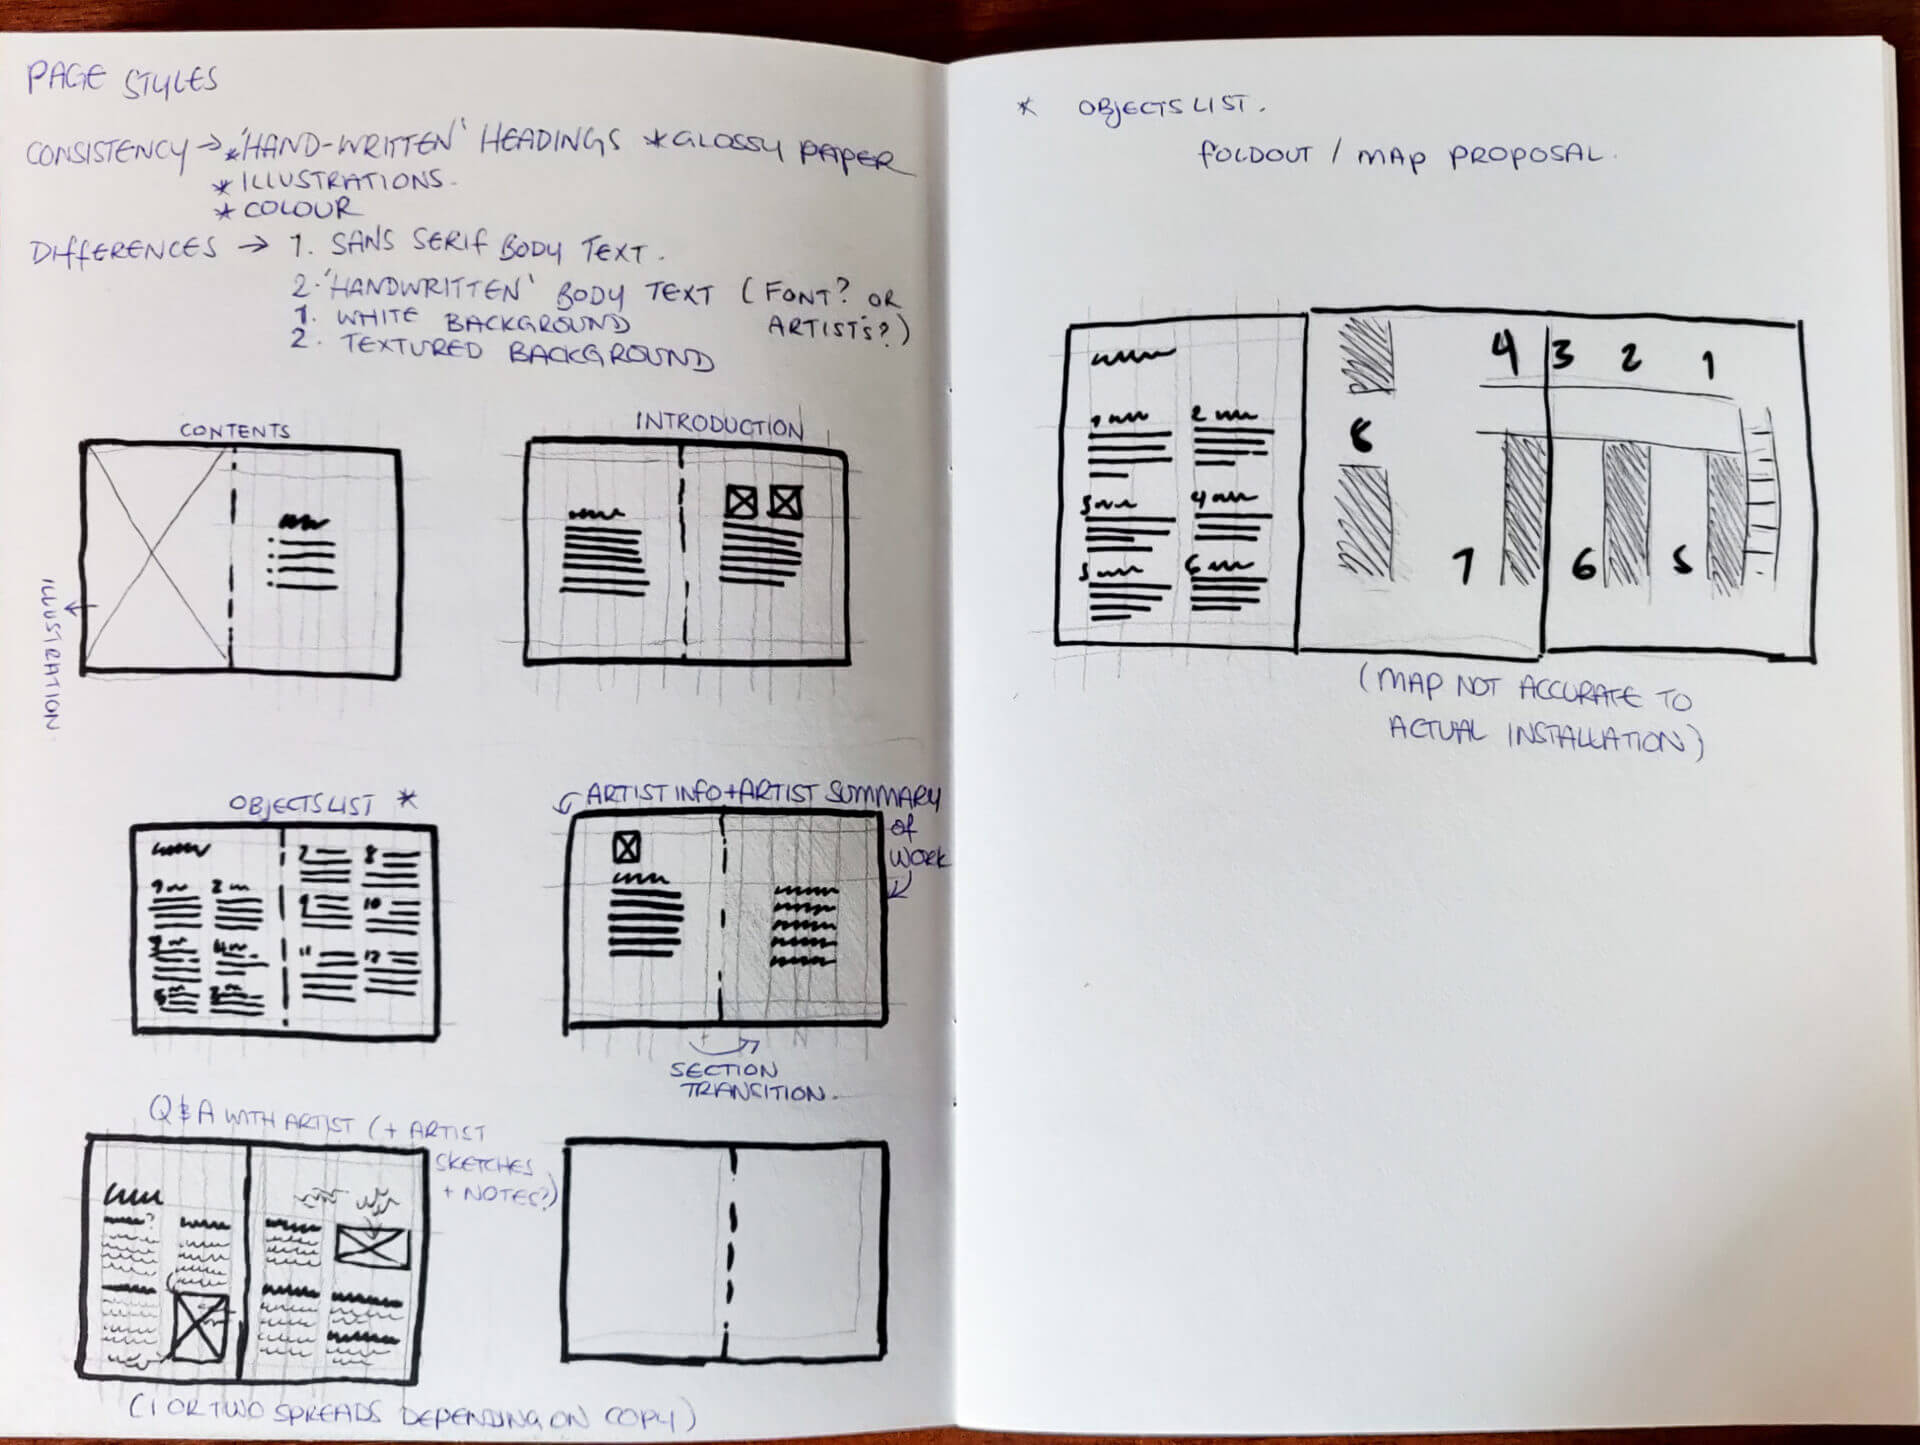 PAGE STYLES
CONSISTENCY → * 'HAND-WRITTEN' HEADINGS * GLOSSY PAPER
* ILLUSTRATIONS.
* COLOUR
DIFFERENCES → 1. SANS SERIF BODY TEXT.
2. 'HANDWRITTEN' BODY TEXT (FONT? OR
ARTIST'S?)
1. WHITE BACKGROUND
2. TEXTURED BACKGROUND
CONTENTS
ILLUSTRATION
INTRODUCTION
OBJECTS LIST *
1 2
3 4
5
7 8
9 10
11 12
ARTIST INFO + ARTIST SUMMARY
OF
WORK
SECTION
TRANSITION.
Q & A WITH ARTIST (+ ARTIST
SKETCHES
+ NOTES?)
(1 OR TWO SPREADS DEPENDING ON COPY)
* OBJECTS LIST.
FOLDOUT / MAP PROPOSAL.
1 2
3 4
5 6
4 3 2 1
8
7 6 5
(MAP NOT ACCURATE TO
ACTUAL INSTALLATION)